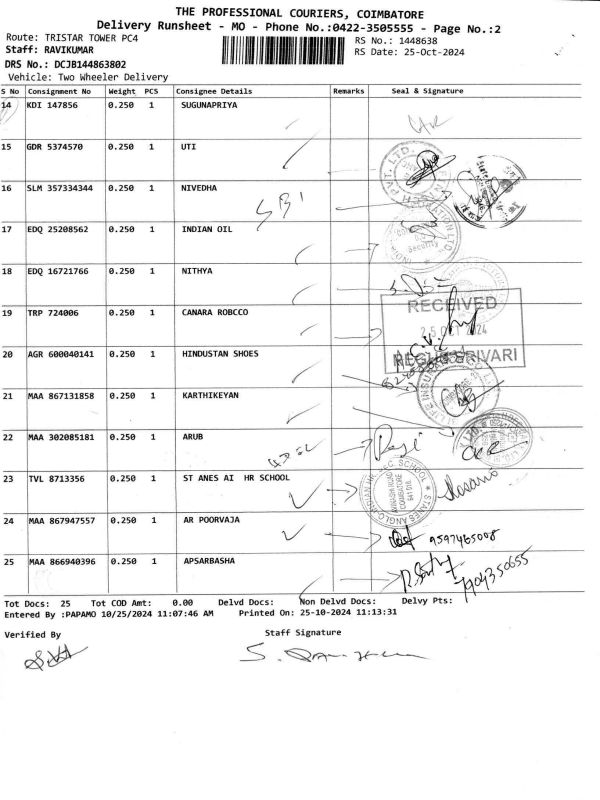 THE PROFESSIONAL COURIERS, COIMBATORE
Delivery Runsheet - MO - Phone No.:0422-3505555 - Page No.:2
Route: TRISTAR TOWER PC4
RS No.: 1448638
Staff: RAVIKUMAR
RS Date: 25-Oct-2024
DRS No.: DCJB144863802
Vehicle: Two Wheeler Delivery
S No Consignment No Weight PCS Consignee Details Remarks Seal & Signature
14 KDI 147856 0.250 1 SUGUNAPRIYA
15 GDR 5374570 0.250 1 UTI
16 SLM 357334344 0.250 1 NIVEDHA
SBI
17 EDQ 25208562 0.250 1 INDIAN OIL
18 EDQ 16721766 0.250 1 NITHYA
19 TRP 724006 0.250 1 CANARA ROBCCO
RECEIVED
25 OCT 2024
20 AGR 600040141 0.250 1 HINDUSTAN SHOES
21 MAA 867131858 0.250 1 KARTHIKEYAN
22 MAA 302085181 0.250 1 ARUB
23 TVL 8713356 0.250 1 ST ANES AI HR SCHOOL
24 MAA 867947557 0.250 1 AR POORVAJA
9597465008
25 MAA 866940396 0.250 1 APSARBASHA
7904350655
Tot Docs: 25 Tot COD Amt: 0.00 Delvd Docs: Non Delvd Docs: Delvy Pts:
Entered By :PAPAMO 10/25/2024 11:07:46 AM Printed On: 25-10-2024 11:13:31
Verified By
Staff Signature